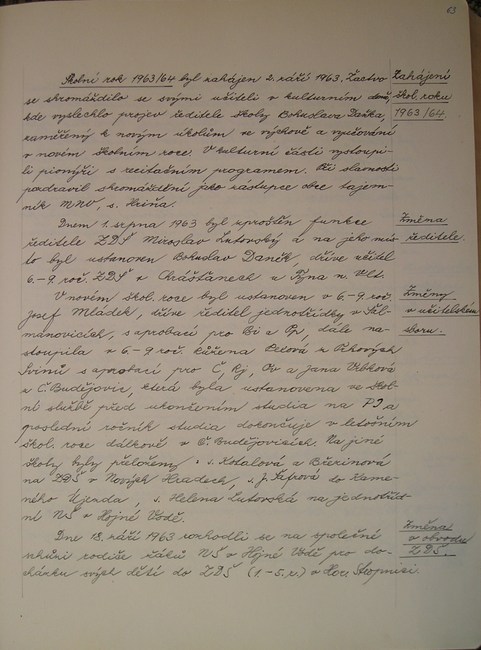 63
Školní rok 1963/64 byl zahájen 2. září 1963. Žactvo
Zahájení
se shromáždilo se svými učiteli v kulturním domě,
škol. roku
kde vyslechlo projev ředitele školy Bohuslava Daňka,
1963/64.
zaměřený k novým úkolům ve výchově a vyučování
v novém školním roce. V kulturní části vystoupi-
li pionýři s recitačním programem. Při slavnosti
pozdravil shromáždění jako zástupce obce tajem-
ník MNV, s. Hriňa.
Dnem 1. srpna 1963 byl zproštěn funkce
Změna
ředitele ZDŠ Miroslav Lutovský a na jeho mís-
ředitele.
to byl ustanoven Bohuslav Daněk, dříve učitel
6.-9. roč. ZDŠ v Chrášťanech u Týna n. Vlt.
V novém škol. roce byl ustanoven v 6.-9. roč.
Změny
Josef Mládek, dříve ředitel jednotřídky v
v učitelském
mánovicích, s aprobací pro Bi a Pp, dále na-
sboru.
stoupila v 6.-9 roč. Růžena z Trhových
Svinů s aprobací pro Č, Rj, Ov a Jana Vrbková
z Č. Budějovic, která byla ustanovena ve škol-
ní službě před ukončením studia na PI a
poslední ročník studia dokončuje v letošním
škol. roce dálkově v Č. Budějovicích. Na jiné
školy byly přeloženy: s. Kotalová a Březinová
na ZDŠ v Nových Hradech, s. J. do Kame-
ného Újezda, s. Helena Lutovská na jednotříd-
ní NŠ v Hojné Vodě.
Dne 13. září 1963 rozhodli se na společné
Změna
schůzi rodiče žáků NŠ v Hojné Vodě pro do-
v obvodu
cházku svých dětí do ZDŠ (1.-5. r.) v Hor. Stropnici.
ZDŠ.